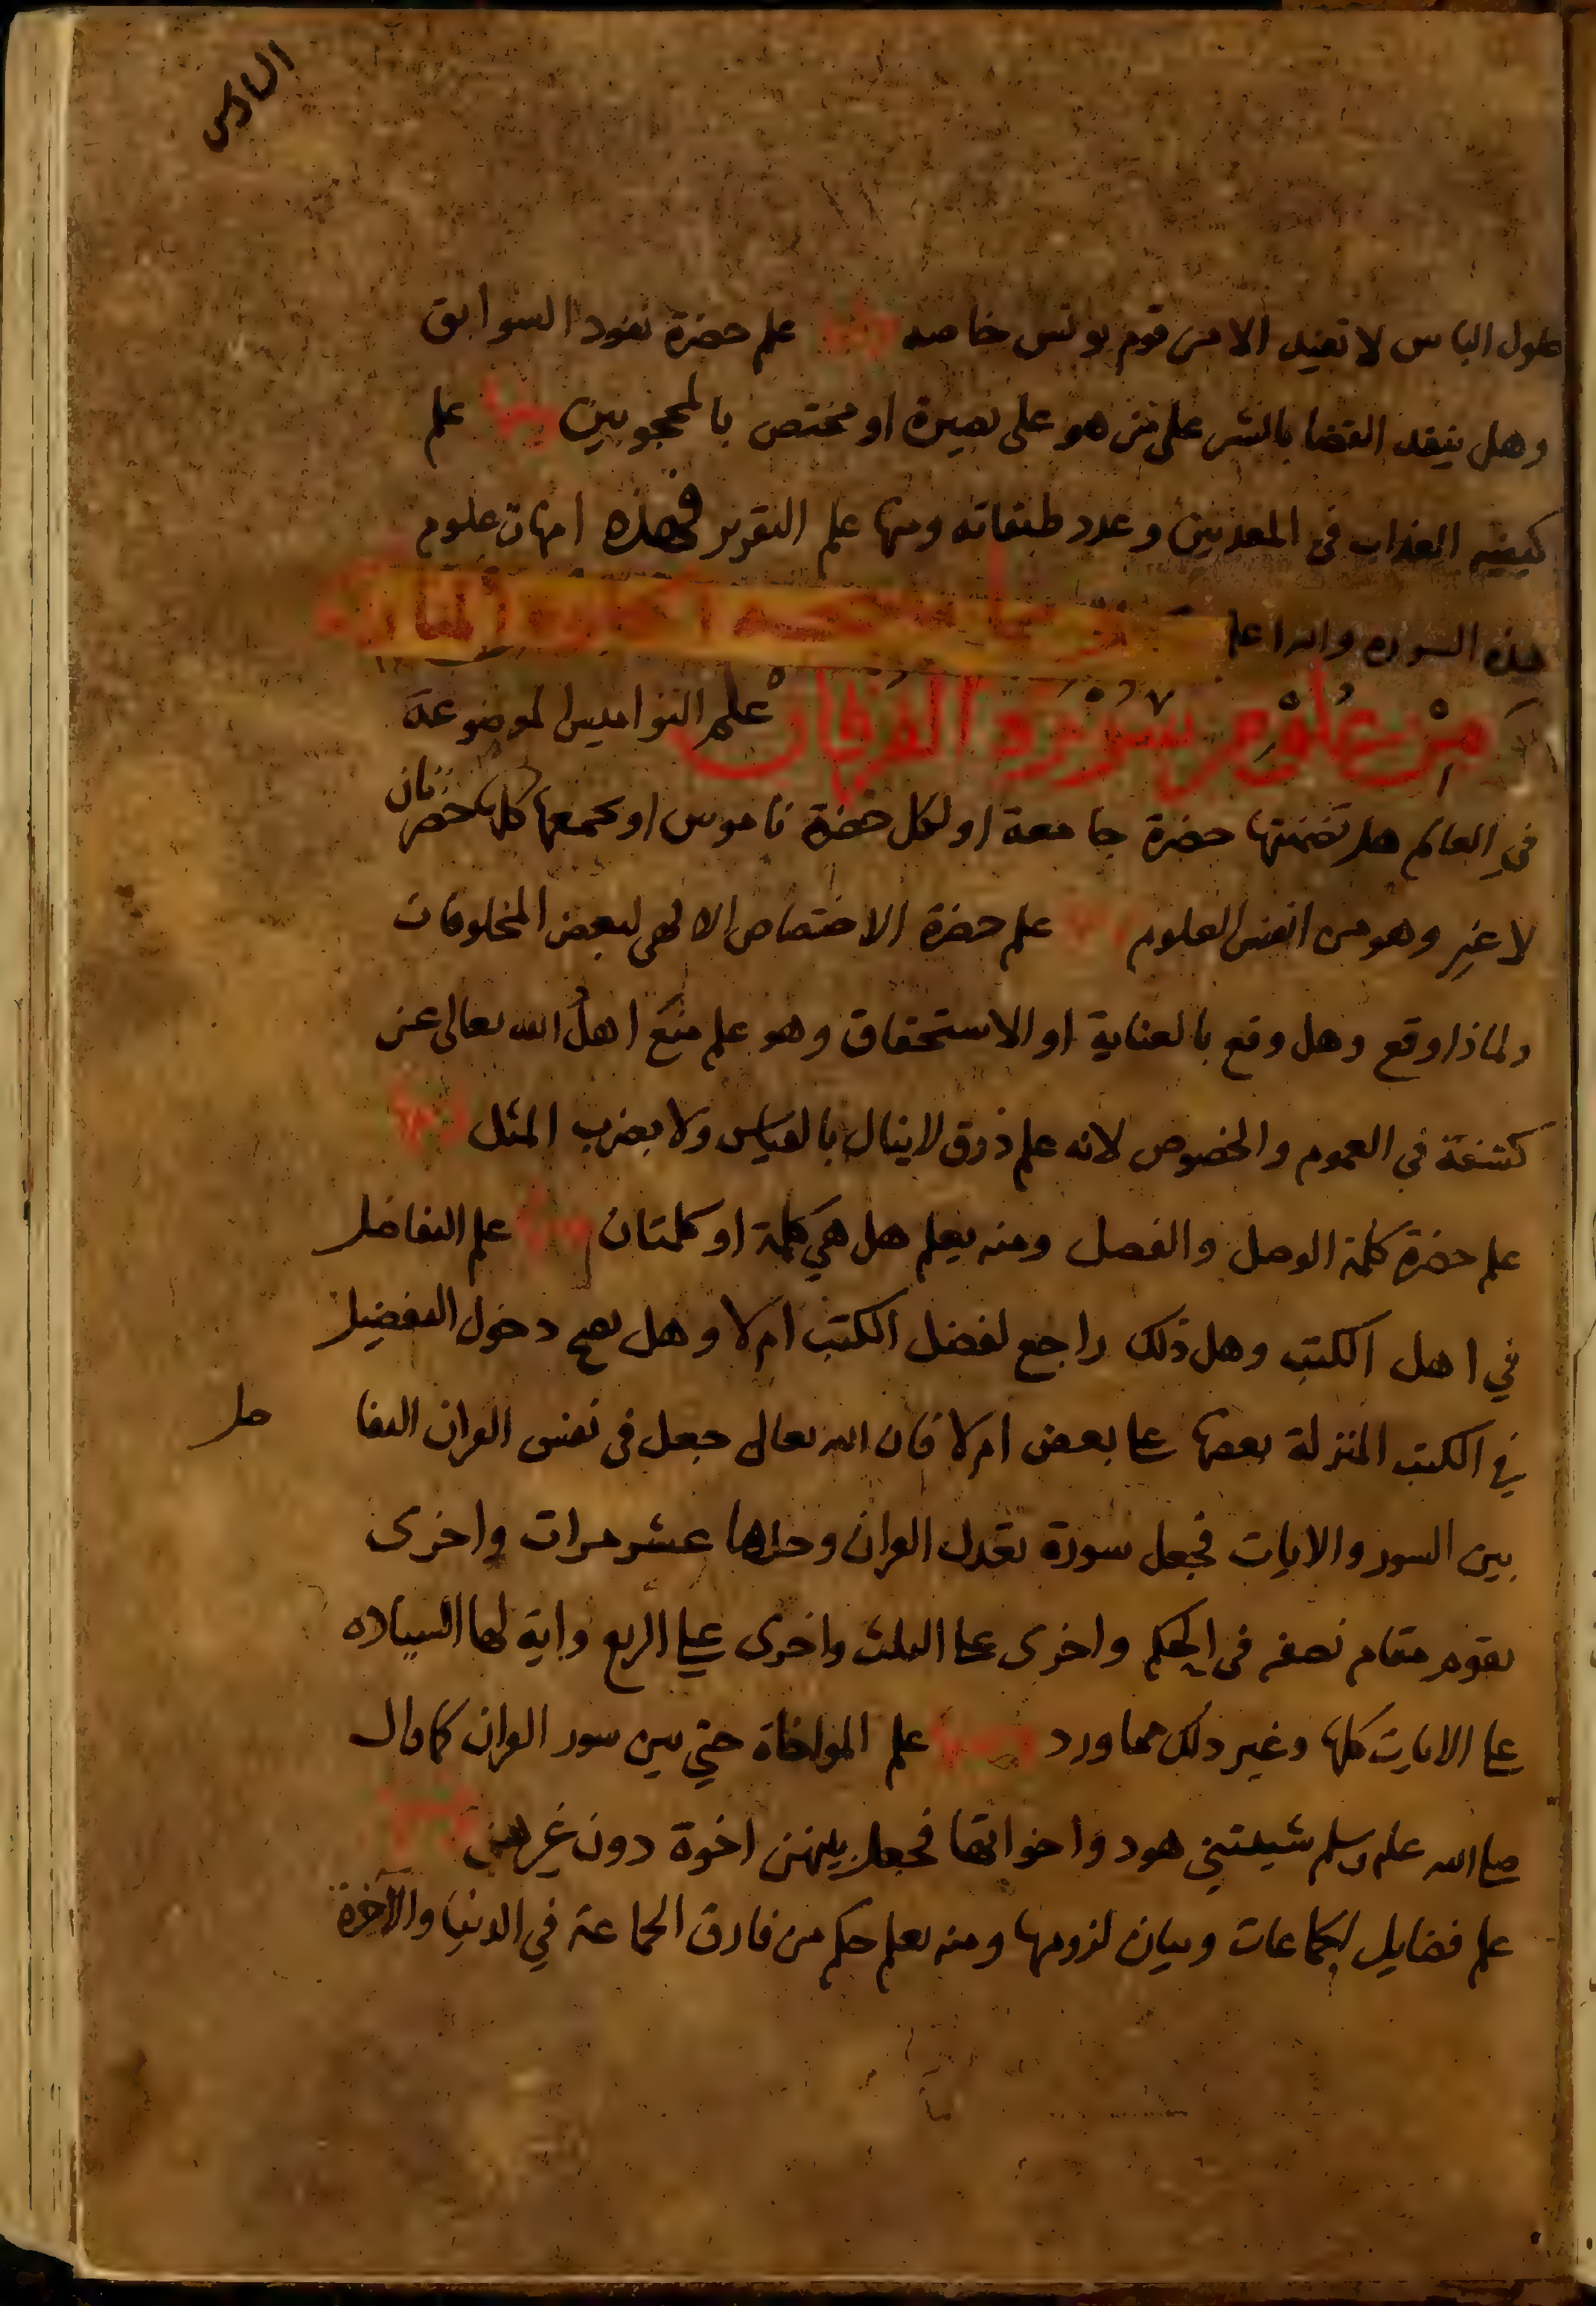 السادس
حلول الباس لا تفيد الا من قوم يونس خاصه ومنها علم حضرة نفوذ السوابق
وهل ينفذ القضا بالشر على من هو على بصيرة او مختص بالمحجوبين ومنها علم
كيفية العذاب في المعذبين وعدد طبقاته ومنها علم التقرير فهذه امهات علوم
هذه السوره والله اعلم
من علوم سورة الفرقان علم النواميس الموضوعة
في العالم هل تضمنتها حضرة جامعة او لكل حضرة ناموس او يجمعها كلها حضرتان
لا غير وهو من انفس العلوم ومنها علم حضرة الاختصاص الالهي لبعض المخلوقات
ولماذا وقع وهل وقع بالعناية او الاستحقاق وهو علم منع اهل الله تعالى عن
كشفة في العموم والخصوص لانه علم ذوق لا ينال بالقياس ولا بضرب المثل ومنها
علم حضرة كلمة الوصل والفصل ومنه يعلم هل هي كلمة او كلمتان ومنها علم التفاضل
في اهل الكتب وهل ذلك راجع لفضل الكتب ام لا وهل يصح دخول التفضيل
في الكتب المنزلة بعضها على بعض ام لا فان الله تعالى جعل في نفس القران التفا ضل
بين السور والايات فجعل سورة تعدل القران وحدها عشر مرات واخرى
تقوم مقام نصفه في الحكم واخرى على الثلث واخرى على الربع واية لها السياده
على الايات كلها وغير ذلك مما ورد ومنها علم المواخاة حتي بين سور القران كما قال
صلى الله عليه وسلم شيبتني هود واخواتها فجعل بينهن اخوة دون غيرهن ومنها
علم فضايل الجماعات وبيان لزومها ومنه يعلم حكم من فارق الجماعة في الدنيا والآخرة